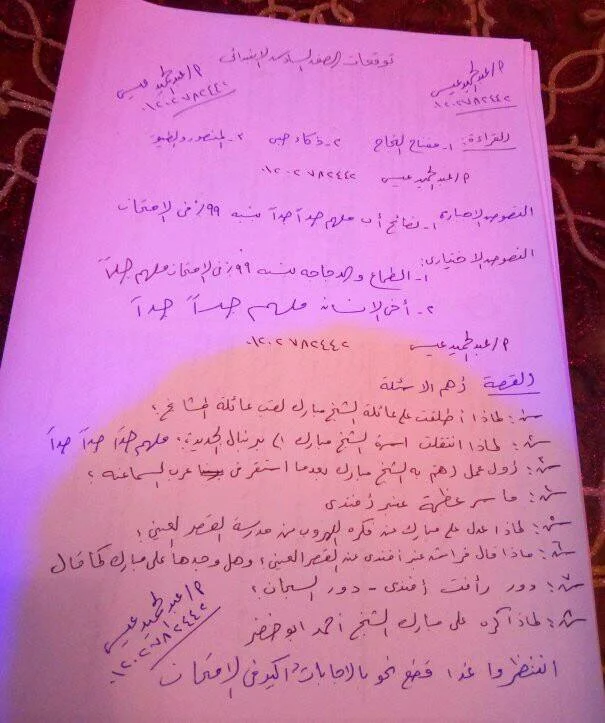 توقعات الصف السادس الابتدائى
م/عبد الحميد عيسى
٠١٢٠٢٧٨٢٤٤٢
م/عبد الحميد عيسى
٠١٢٠٢٧٨٢٤٤٢
القراءة: ١- مفتاح النجاح ٢- ذكاء صبى ٣- المنصور والطيور
م/عبد الحميد عيسى ٠١٢٠٢٧٨٢٤٤٢
النصوص الاجبارية ١- نصائح أب ملهم جداً جداً بنسبه ٩٩٪ فى الامتحان
النصوص الاختيارى:
١- الطماع والدجاجه بنسبه ٩٩٪ فى الامتحان ملهم جداً
٢- أخى الإنسان ملهم جداً جداً
م/عبد الحميد عيسى ٠١٢٠٢٧٨٢٤٤٢
القصة أهم الاسئلة
س: لماذا أطلقت على عائلة الشيخ مبارك لقب عائلة المشايخ؟
س: لماذا انتقلت اسرة الشيخ مبارك الى برنبال الجديدة؟ ملهم جداً جداً جداً
س: أول عمل اهتم به الشيخ مبارك بعدما استقر فى عرب السماعنه؟
س: ما سر عظمة عنبر أفندى
س: لماذا عدل على مبارك عن فكره الهروب من مدرسة القصر العينى؟
س: ماذا قال فراش عنبر أفندى عن القصر العينى؟ وهل وجدها على مبارك كما قال
س: دور رأفت أفندى - دور السجان؟
س: لماذا كره على مبارك الشيخ احمد ابو خضر
م/عبد الحميد عيسى
٠١٢٠٢٧٨٢٤٤٢
انتظروا غدا قطع نحو بالاجابات أكيد فى الامتحان